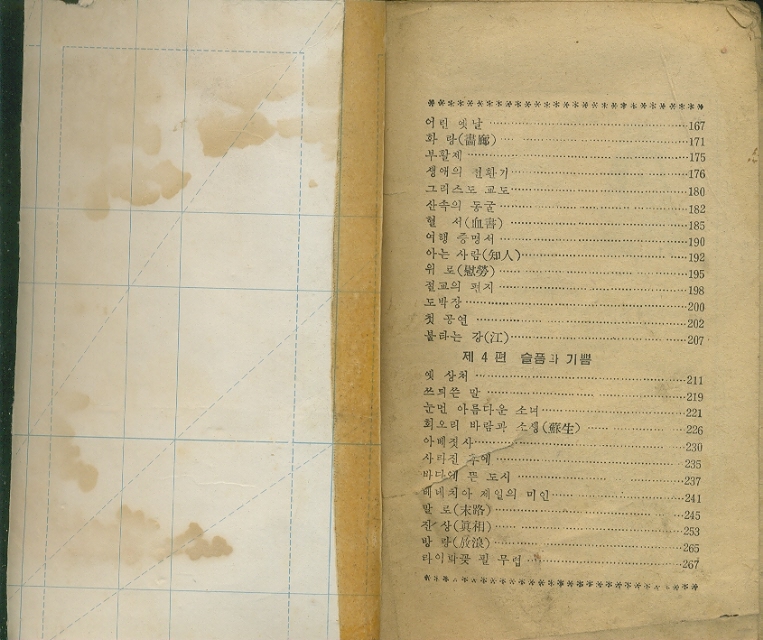 어린 옛날 167
화 랑(畵廊) 171
부활제 175
생애의 전환기 176
그리스도 교도 180
산속의 동굴 182
혈 서(血書) 185
여행 증명서 190
아는 사람(知人) 192
위 로(慰勞) 195
절교의 편지 198
도박장 200
첫 공연 202
불타는 강(江) 207
제 4 편 슬픔과 기쁨
옛 상처 211
쓰디쓴 말 219
눈먼 아름다운 소녀 221
회오리 바람과 소생(蘇生) 226
아베짓사 230
사라진 후에 235
바다에 뜬 도시 237
베네치아 제일의 미인 241
말 로(末路) 245
진 상(眞相) 253
방 랑(放浪) 265
필 무렵 267